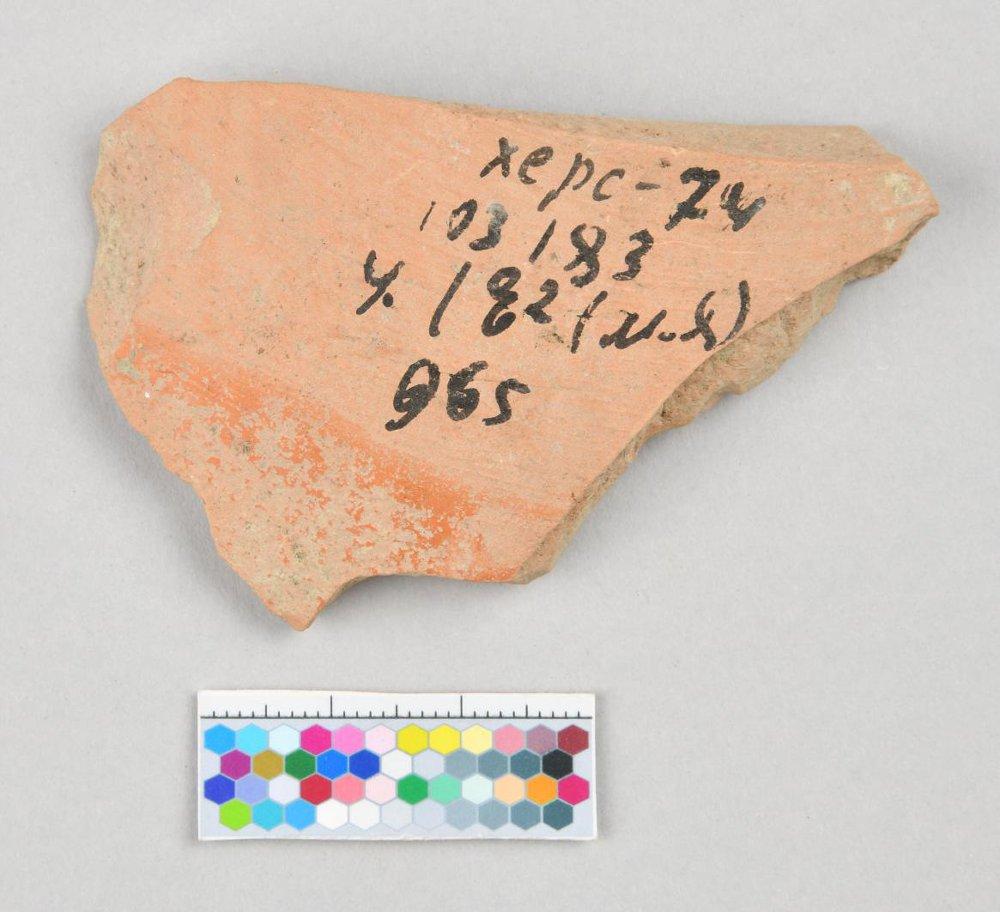 херс-74
103183
ч. 182 (м.я)
965